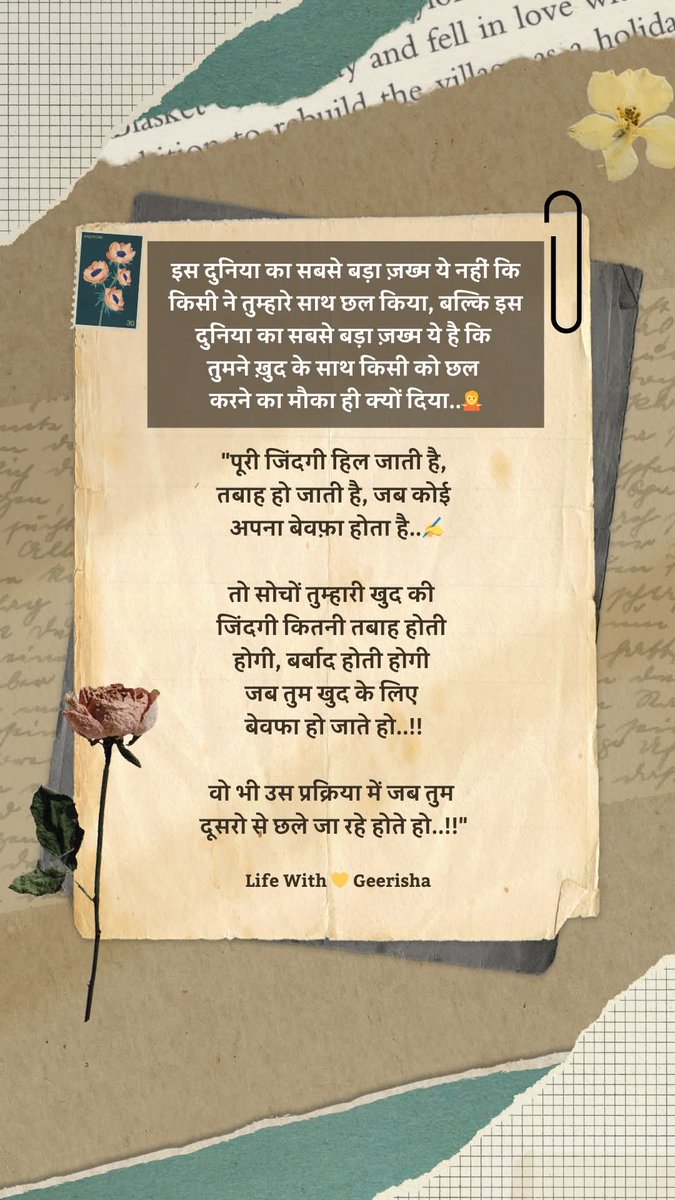 and fell in love
rebuild the village as a holiday
इस दुनिया का सबसे बड़ा ज़ख्म ये नहीं कि
किसी ने तुम्हारे साथ छल किया, बल्कि इस
दुनिया का सबसे बड़ा ज़ख्म ये है कि
तुमने ख़ुद के साथ किसी को छल
करने का मौका ही क्यों दिया..🤷
"पूरी जिंदगी हिल जाती है,
तबाह हो जाती है, जब कोई
अपना बेवफ़ा होता है..✍️
तो सोचों तुम्हारी खुद की
जिंदगी कितनी तबाह होती
होगी, बर्बाद होती होगी
जब तुम खुद के लिए
बेवफा हो जाते हो..!!
वो भी उस प्रक्रिया में जब तुम
दूसरो से छले जा रहे होते हो..!!"
Life With 💛 Geerisha
30